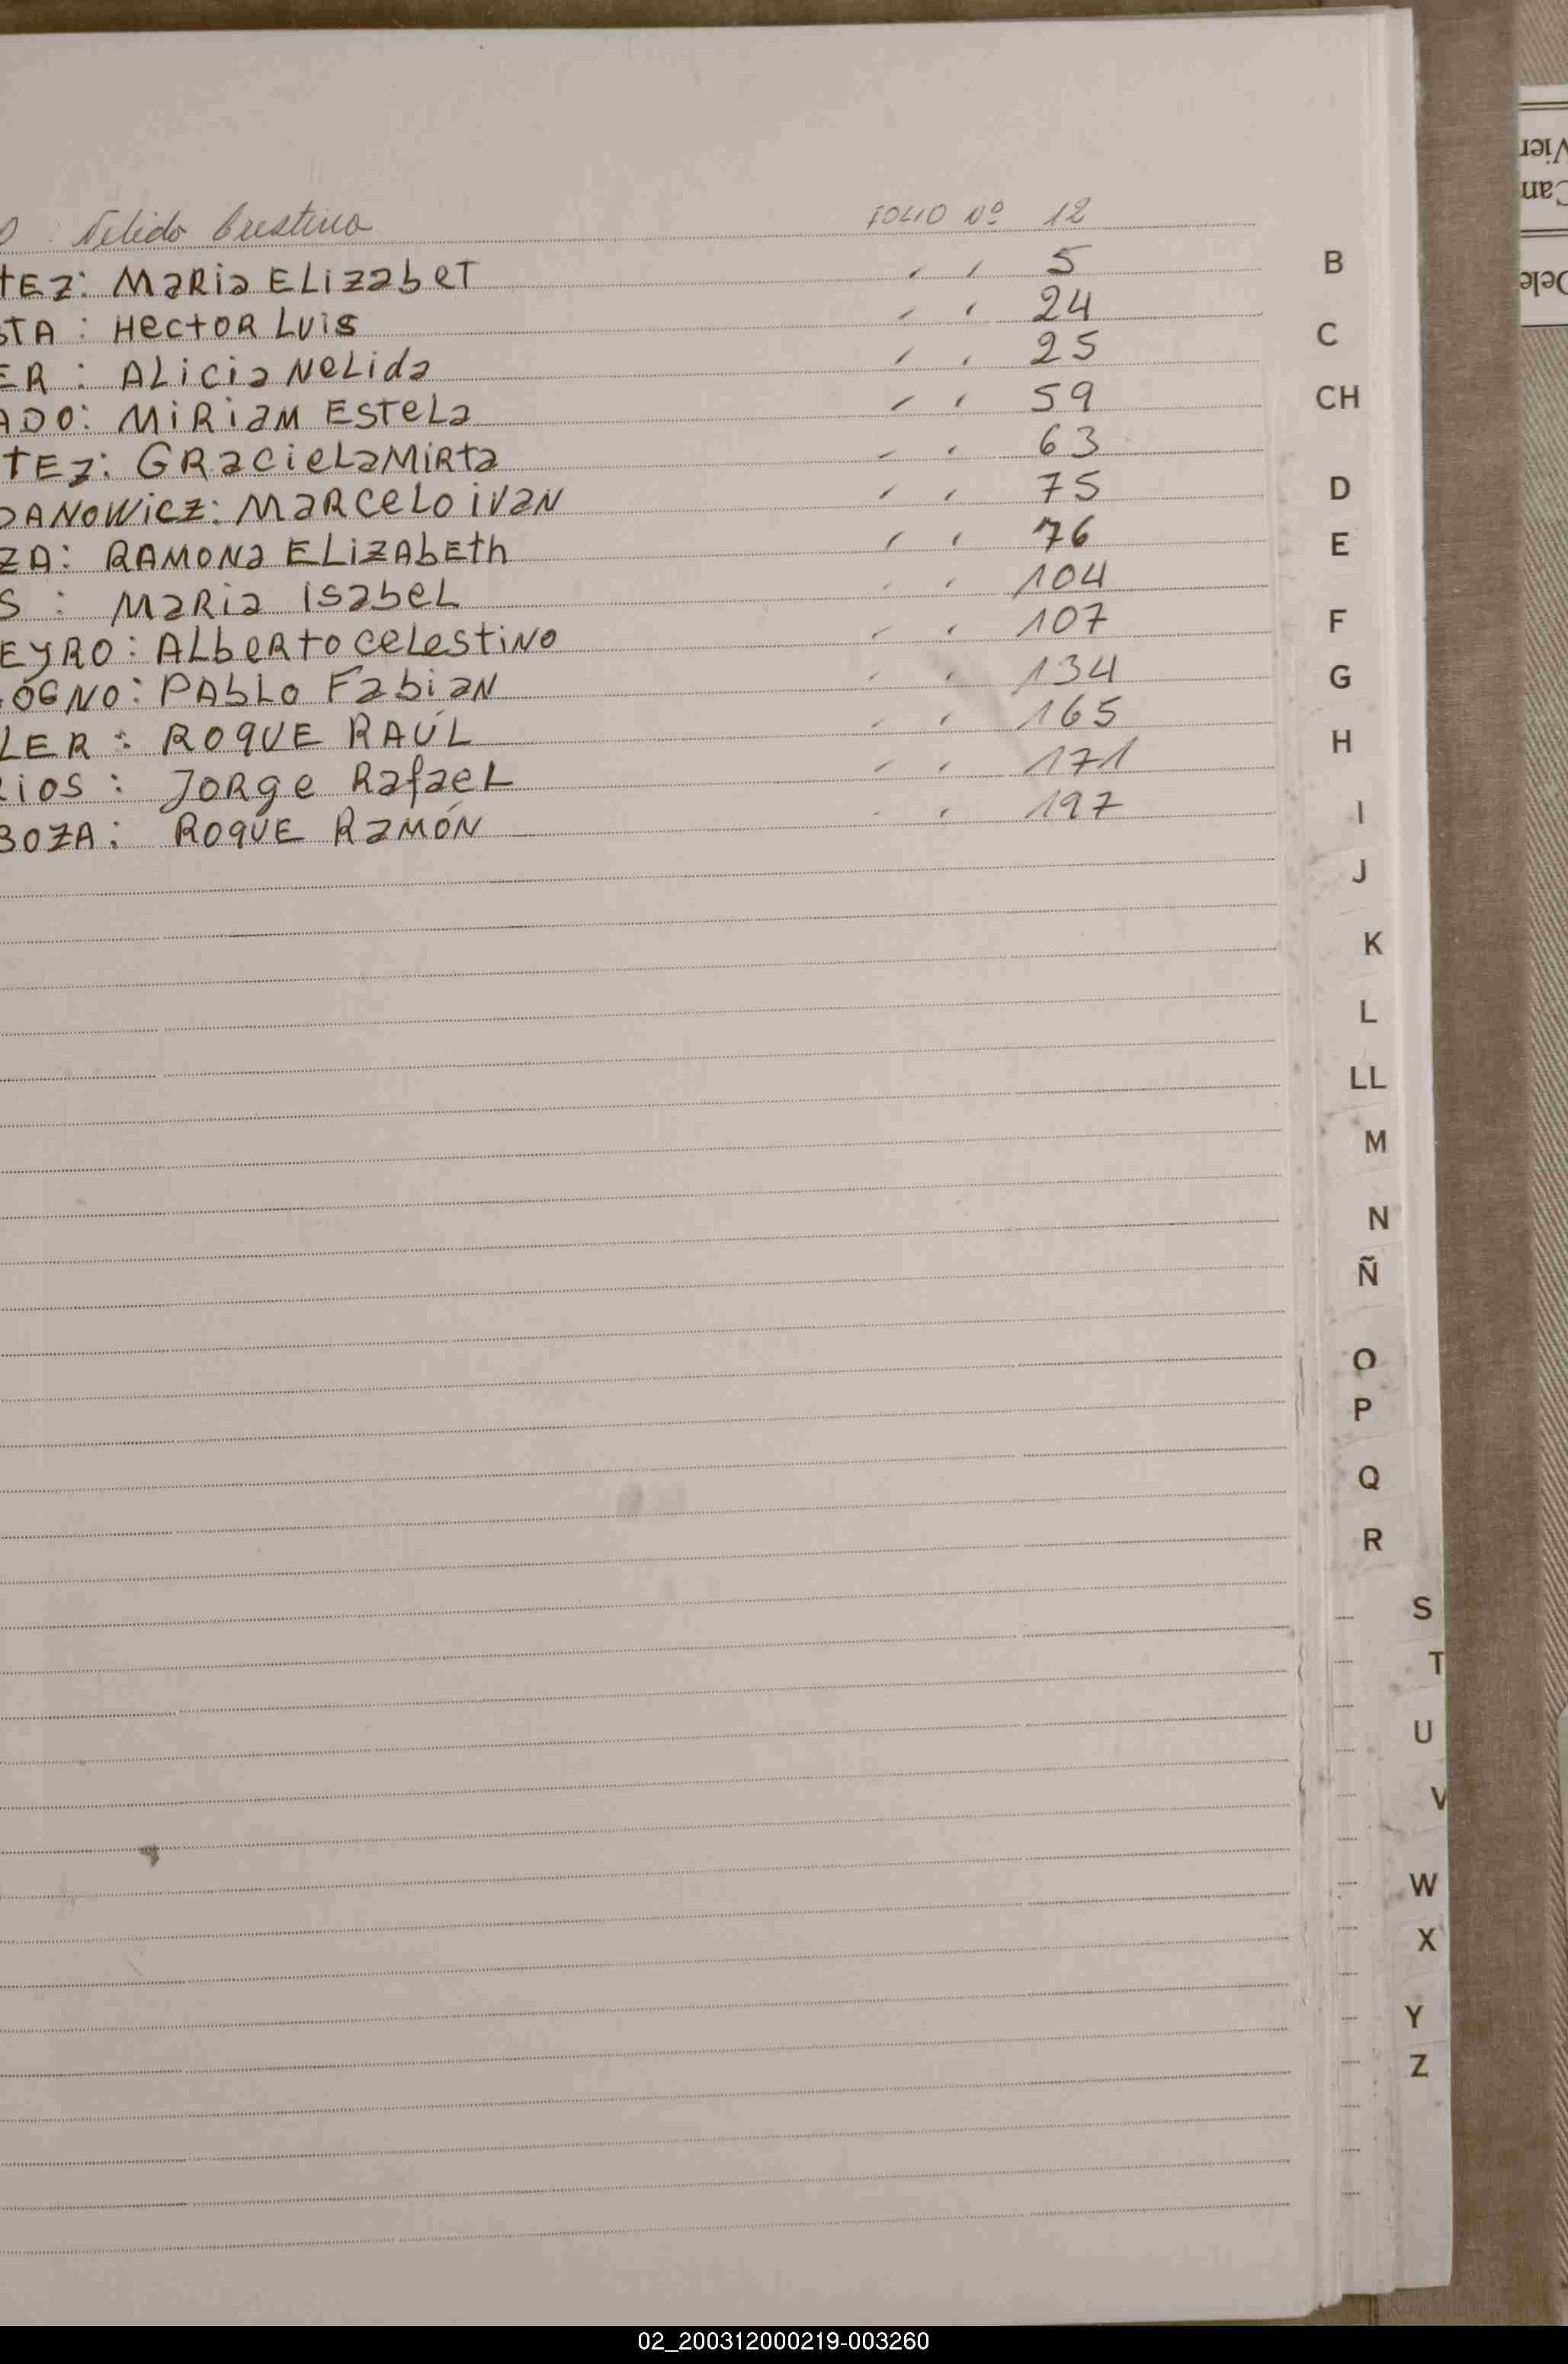 O : Nelida Cristina FOLIO Nº 12
TEZ: MARIA ELIZABET " " 5 B
STA : HECTOR LUIS " " 24
ER : ALICIA NELIDA " " 25 C
ADO: MIRIAM ESTELA " " 59 CH
TEZ: GRACIELA MIRTA " " 63
DANOWICZ: MARCELO IVAN " " 75 D
ZA: RAMONA ELIZABETH " " 76 E
S : MARIA ISABEL " " 104
EYRO: ALBERTO CELESTINO " " 107 F
OGNO: PABLO FABIAN " " 134 G
LER : ROQUE RAÚL " " 165 H
RIOS : JORGE RAFAEL " " 171
BOZA: ROQUE RAMÓN " " 197 I
J
K
L
LL
M
N
Ñ
O
P
Q
R
S
T
U
V
W
X
Y
Z
Vier
Can
Dele
02_200312000219-003260